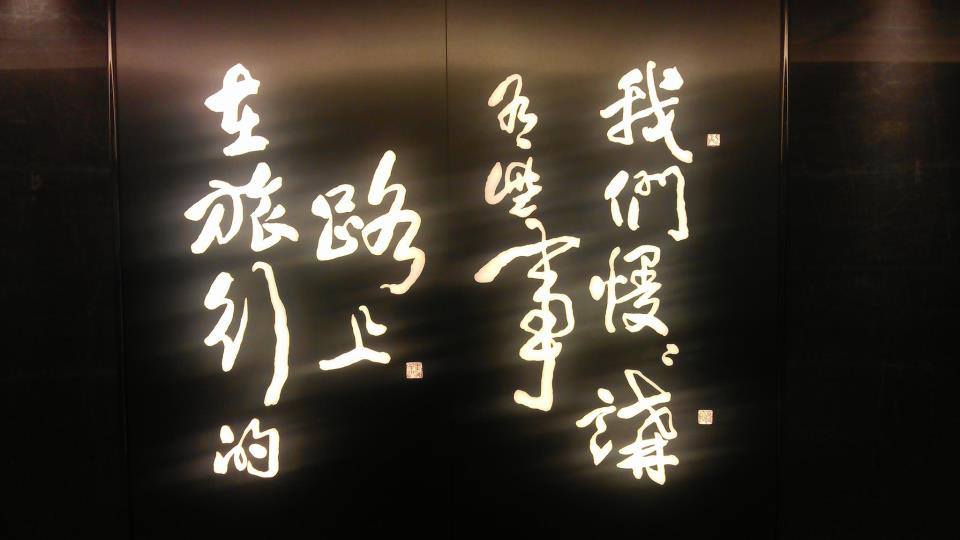 在旅行的
路上
有些事
我們慢慢講